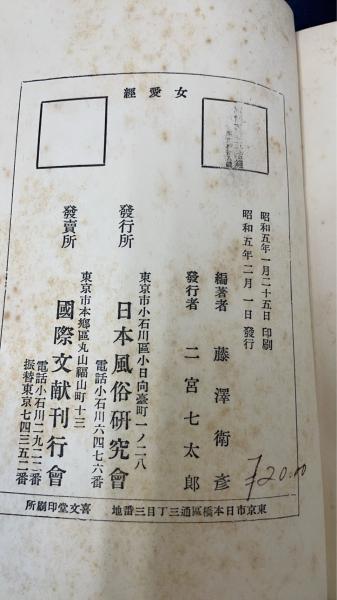 女愛經
昭和五年一月二十五日印刷
昭和五年二月一日發行
編著者 藤澤衛彦
發行者 二宮七太郎
東京市小石川區小日向臺町一ノ二八
發行所 日本風俗研究會
電話小石川六四七六番
東京市本郷區丸山福山町十三
發賣所 國際文献刊行會
電話小石川二九二二番
振替東京七四三五二番
東京市日本橋區通三丁目三番地 喜文堂印刷所